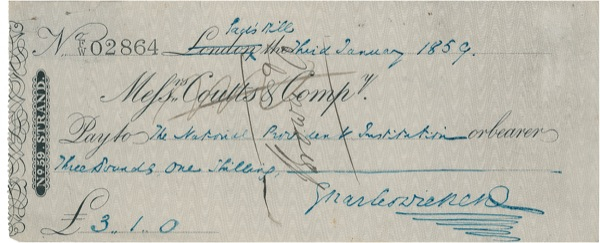 No. E/W 02864 Gad's Hill London, the Third January 1859.
Messrs. Coutts & Compy.
Pay to The National Provident Institution or bearer
Three Pounds, One Shilling,
£3..1..0 Charles Dickens
No. 59 STRAND.